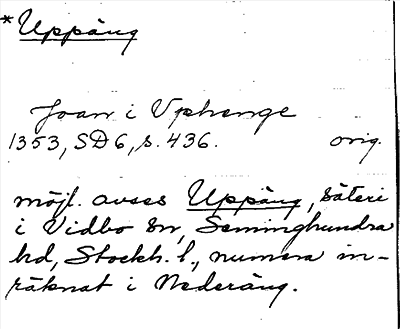 *Uppäng
Joan i Vphenge
1353, SD 6, s. 436. orig.
möjl. avses Uppäng, säteri
i Vidbo sn, Seminghundra
hd, Stockh. l., numera in-
räknat i Nederäng.